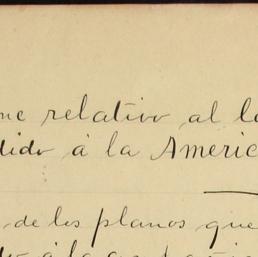 me relativo al
dido á la Americ
de los planos que